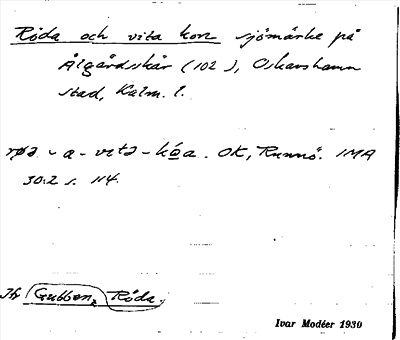 Röda och vita kon sjömärke på
Ålgårdsskär (102), Oskarshamn
stad, Kalm. l.
røə - a - vitə - kóa. OK, Runnö. IMA
30:2 s. 114.
Jfr Gubben, Röda.
Ivar Modéer 1930